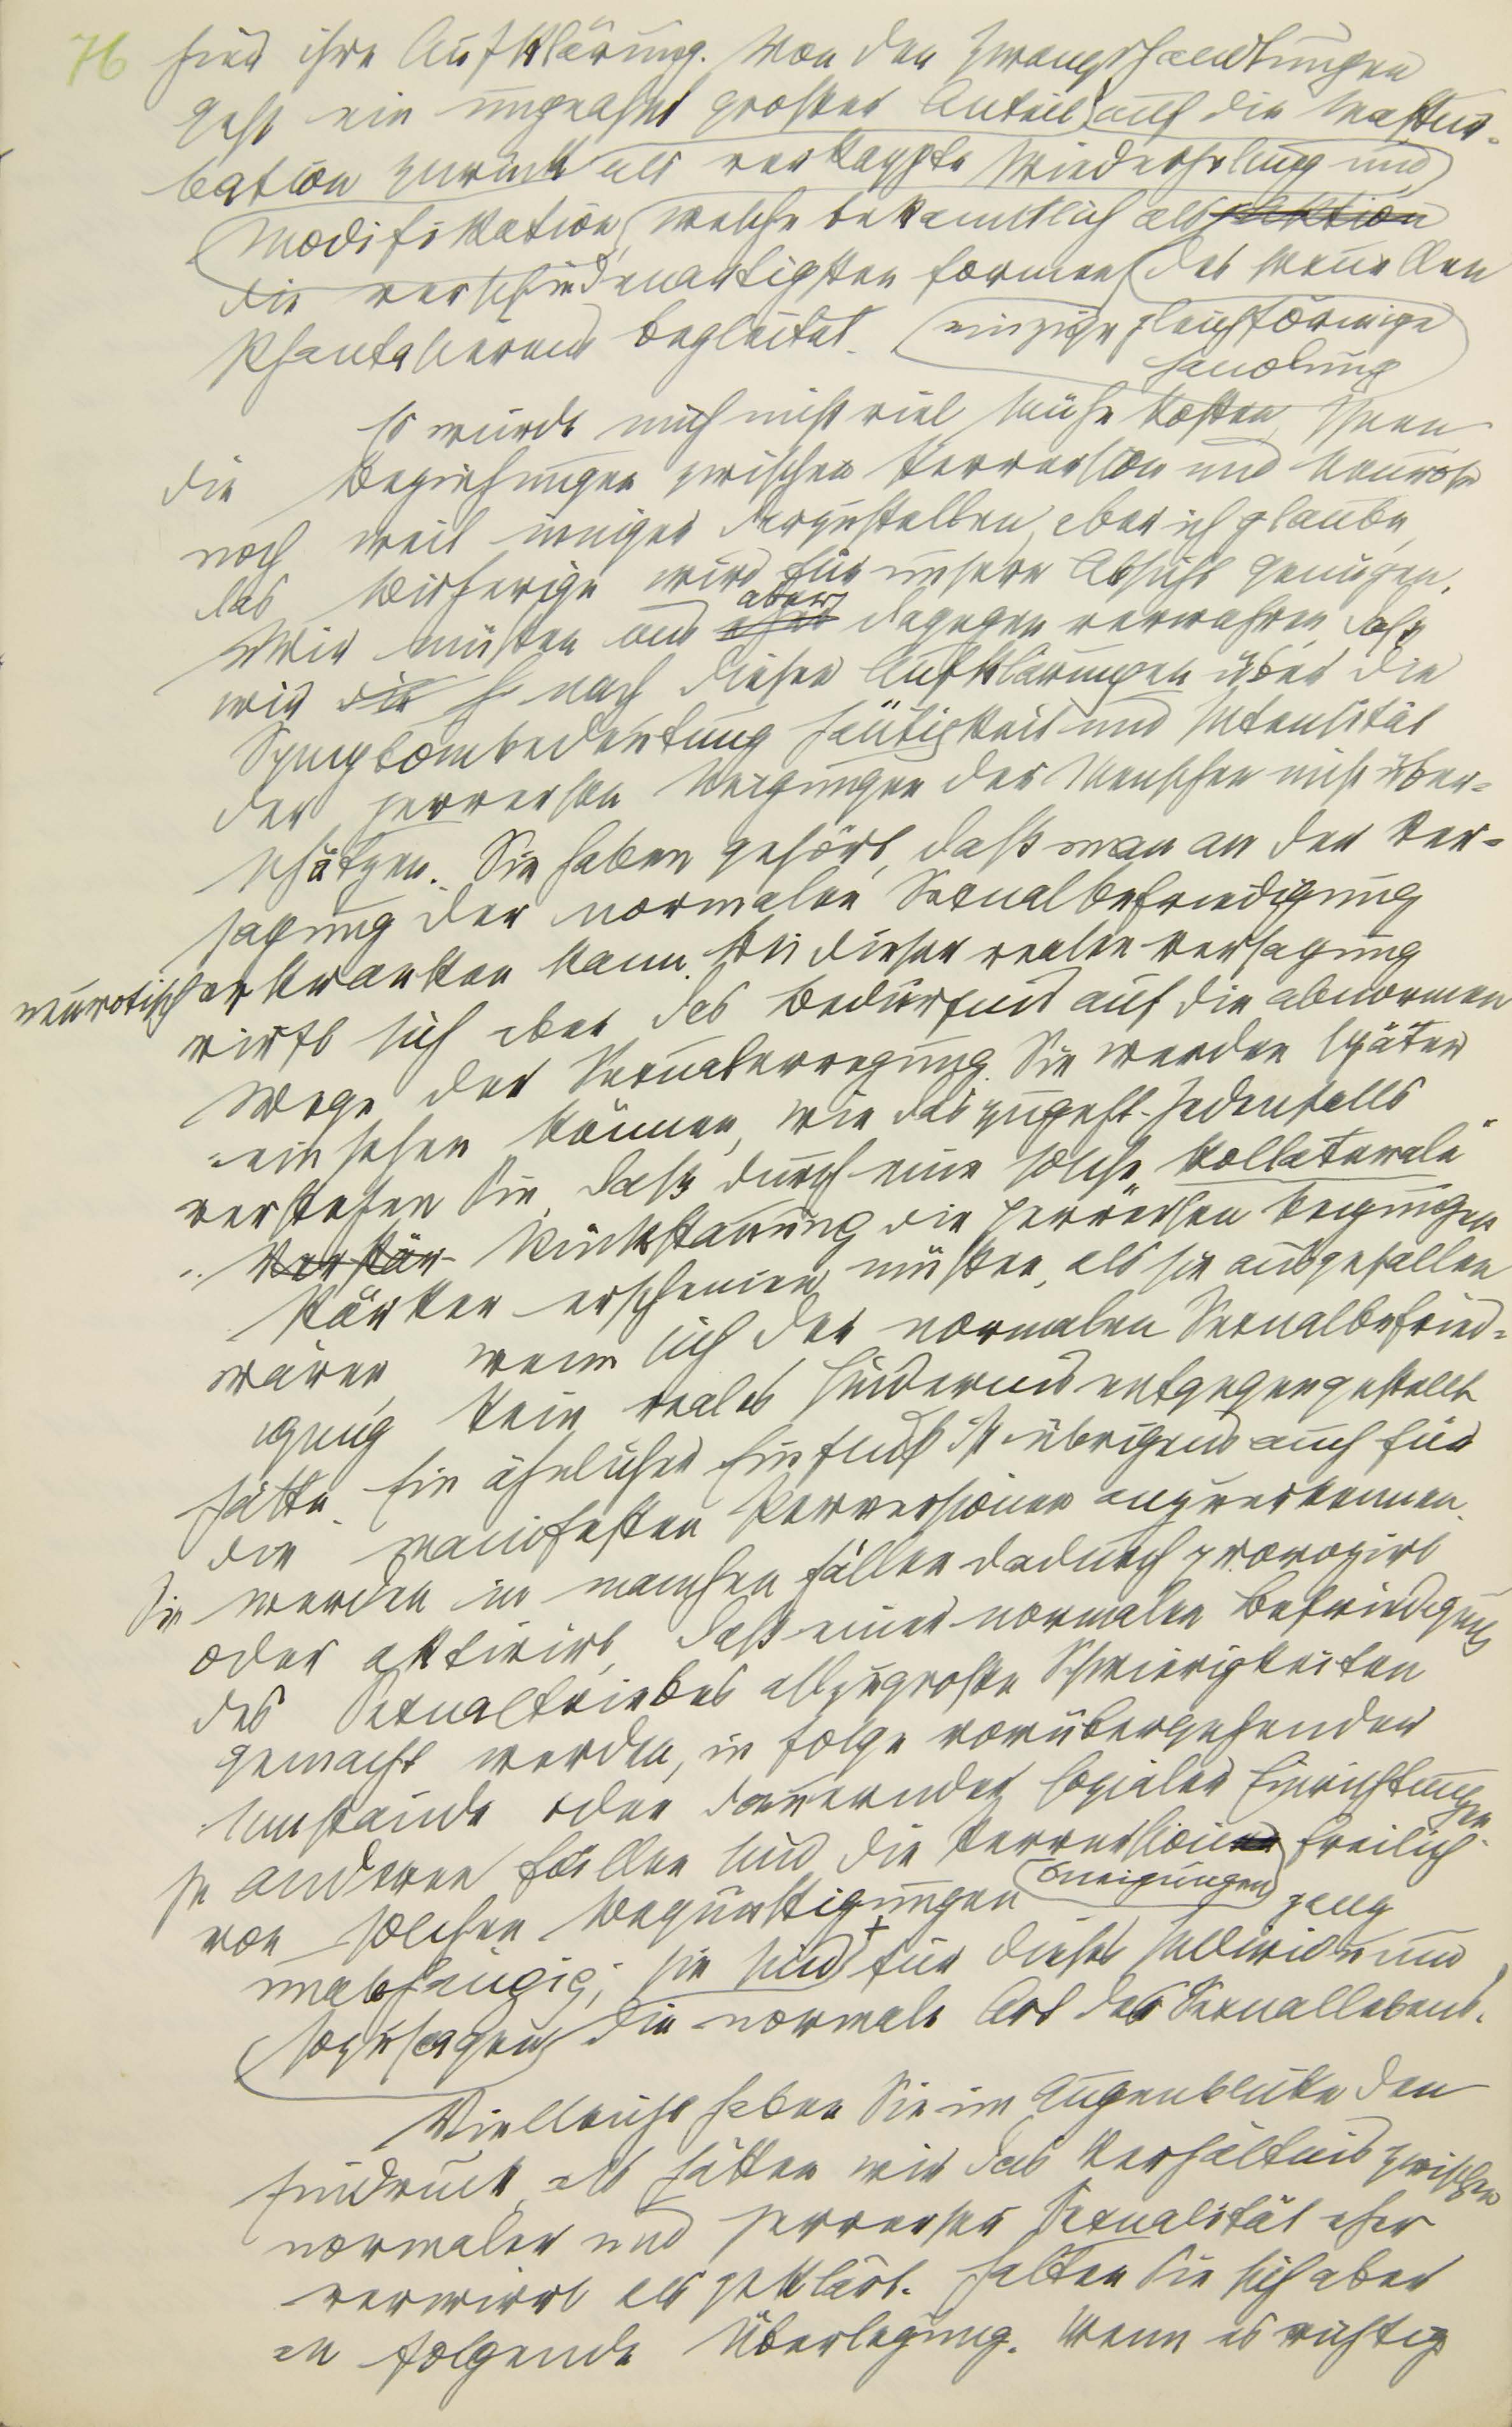 76
hier ihre Aufklärung. Von den Zwangshandlungen
geht ein ungeahnt großer Anteil auf die Mastur-
bation zurück als verkappte Wiederholung und
Modifikation, welche bekanntlich als Aktion
die verschiedenartigsten Formen des sexuellen
Phantasierens begleitet. einzige gleichförmige
Handlung
Es würde mich nicht viel Mühe kosten, Ihnen
die Beziehungen zwischen Perversion und Neurose
noch weit inniger darzustellen, aber ich glaube,
das Bisherige wird für unsere Absicht genügen.
aber
Wir müßen uns dagegen verwahren, daß
wir die h nach diesen Aufklärungen über die
Symptombedeutung Häufigkeit und Intensität
der perversen Neigungen der Menschen nicht über-
schätzen. Sie haben gehört, daß man an der Ver-
sagung der normalen Sexualbefriedigung
neurotisch erkranken kann. Bei dieser realen Versagung
wirft sich aber das Bedürfnis auf die abnormen
Wege der Sexualerregung. Sie werden später
einsehen können, wie das zugeht. Jedenfalls
verstehen Sie, daß durch eine solche „kollaterale"
Verstär- Rückstauung die perversen Regungen
stärker erscheinen müßen, als sie ausgefallen
wären, wenn sich der normalen Sexualbefried-
igung kein reales Hindernis entgegengestellt
hätte. Ein ähnlicher Einfluß ist übrigens auch für
die manifesten Perversionen anzuerkennen.
Sie werden in manchen Fällen dadurch provozirt
oder aktivirt, daß einer normalen Befriedigung
des Sexualtriebes allzugroße Schwierigkeiten
gemacht werden, in folge vorübergehender
Umstände oder dauernder sozialer Einrichtungen.
In anderen Fällen sind die Perversionen freilich
neigungen ganz
von solchen Begünstigungen
unabhängig; sie sind für dieses Individuum
sozusagen die normale Art des Sexuallebens.
Vielleicht haben Sie im Augenblicke den
Eindruck, als hätten wir das Verhältnis zwischen
normaler und perverser Sexualität eher
verwirrt als geklärt. Halten Sie sich aber
an folgende Überlegung. Wenn es richtig